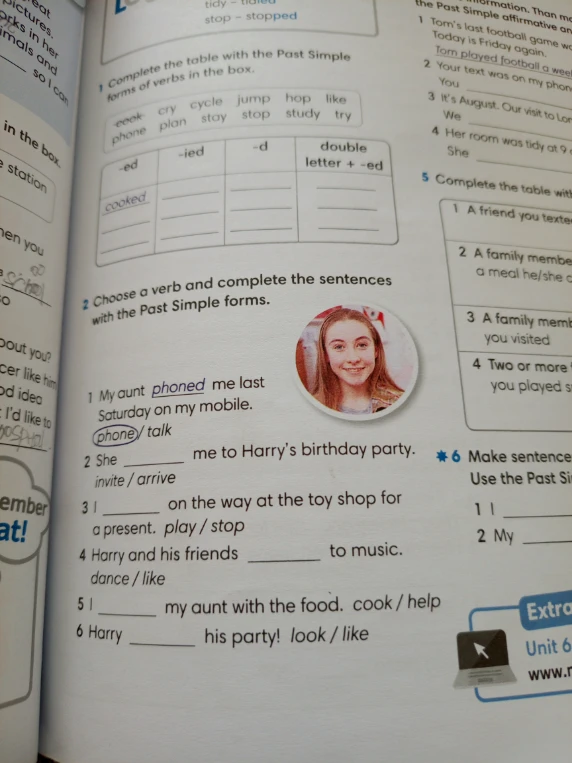 tidy – tidied
stop – stopped
1 Complete the table with the Past Simple
forms of verbs in the box.
cook cry cycle jump hop like
phone plan stay stop study try
-ed -ied -d double
letter + -ed
cooked
2 Choose a verb and complete the sentences
with the Past Simple forms.
1 My aunt phoned me last
Saturday on my mobile.
phone / talk
2 She ________ me to Harry's birthday party.
invite / arrive
3 I ________ on the way at the toy shop for
a present. play / stop
4 Harry and his friends ________ to music.
dance / like
5 I ________ my aunt with the food. cook / help
6 Harry ________ his party! look / like
pictures.
orks in her
imals and
so I can
in the box.
station
en you
bout you?
cer like him
od idea
I'd like to
ember
at!
the Past Simple affirmative an
1 Tom's last football game w
Today is Friday again.
Tom played football a wee
2 Your text was on my phon
You
3 It's August. Our visit to Lon
We
4 Her room was tidy at 9
She
5 Complete the table with
1 A friend you texte
2 A family membe
a meal he/she c
3 A family memb
you visited
4 Two or more
you played s
6 Make sentence
Use the Past Si
1 I
2 My
Extra
Unit 6
www.